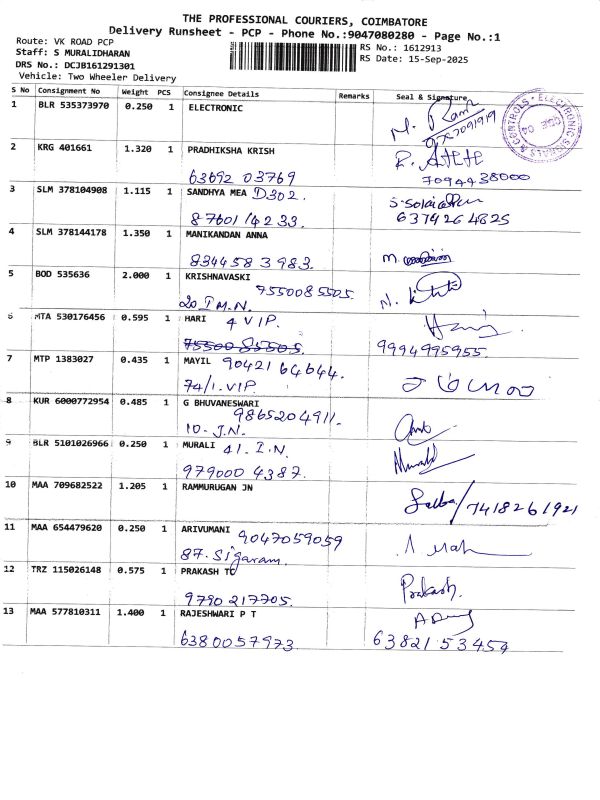 THE PROFESSIONAL COURIERS, COIMBATORE
Delivery Runsheet - PCP - Phone No.:9047080280 - Page No.:1
Route: VK ROAD PCP
Staff: S MURALIDHARAN
DRS No.: DCJB161291301
Vehicle: Two Wheeler Delivery
RS No.: 1612913
RS Date: 15-Sep-2025
S No Consignment No Weight PCS Consignee Details Remarks Seal & Signature
1 BLR 535373970 0.250 1 ELECTRONIC
2 KRG 401661 1.320 1 PRADHIKSHA KRISH
63692 03769 7094438000
3 SLM 378104908 1.115 1 SANDHYA MEA D302.
87601/4233. 6374264825
4 SLM 378144178 1.350 1 MANIKANDAN ANNA
834458 3983.
5 BOD 535636 2.000 1 KRISHNAVASKI
7550085505.
20 I M.N.
6 MTA 530176456 0.595 1 HARI 4 VIP.
75500 85505. 9994995955.
7 MTP 1383027 0.435 1 MAYIL 90421 64644.
74/1. VIP.
8 KUR 6000772954 0.485 1 G BHUVANESWARI
9865204911.
10. J.N.
9 BLR 5101026966 0.250 1 MURALI 41. I.N.
979000 4387.
10 MAA 709682522 1.205 1 RAMMURUGAN JN
7418261921
11 MAA 654479620 0.250 1 ARIVUMANI 9047059059
87. Sigaram.
12 TRZ 115026148 0.575 1 PRAKASH TC Prakash.
9790 217705.
13 MAA 577810311 1.400 1 RAJESHWARI P T
6380057973. 6382153459